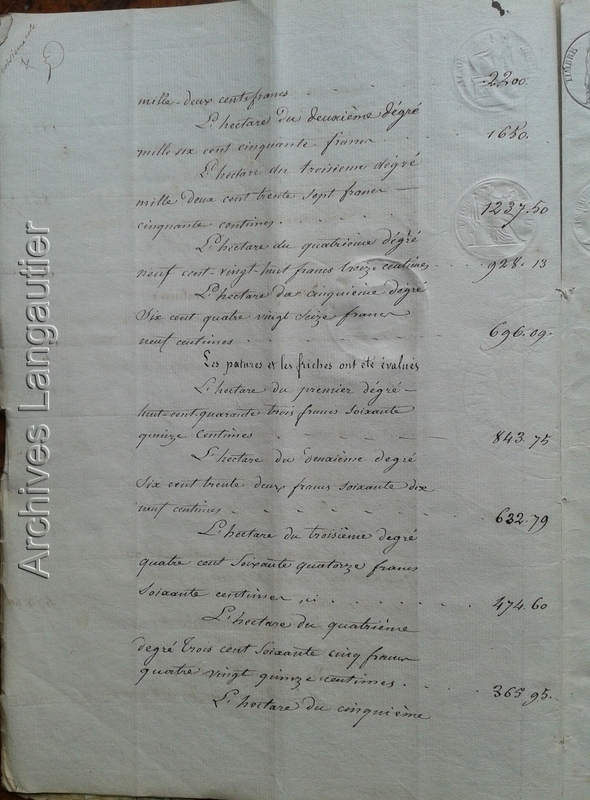 mille-deux cent francs . . . 2200.
L'hectare du deuxième dégré
mille six cent cinquante francs . . . 1650.
L'hectare du troisieme dégré
mille deux cent trente sept francs —
cinquante centimes . . . 1237.50
L'hectare du quatrième dégré
neuf cent vingt huit francs treize centimes . . 928.13
L'hectare du Cinquième dégré
Six cent quatre vingt Seize francs
neuf centimes . . . 696.09.
Les patures et les friches ont été évalués
L'hectare du premier dégré —
huit-cent-quarante trois francs soixante
quinze Centimes . . . 843.75
L'hectare du deuxième degré
Six cent trente deux francs soixante dix
neuf centimes . . . 632.79
L'hectare du troisième degré
quatre cent Soixante quatorze francs
Soixante centimes, ci . . . 474.60
L'hectare du quatrième
degré trois cent Soixante cinq francs
quatre vingt quinze centimes . . . 365.95.
L'hectare du cinquième
Archives Langautier
TIMBRE